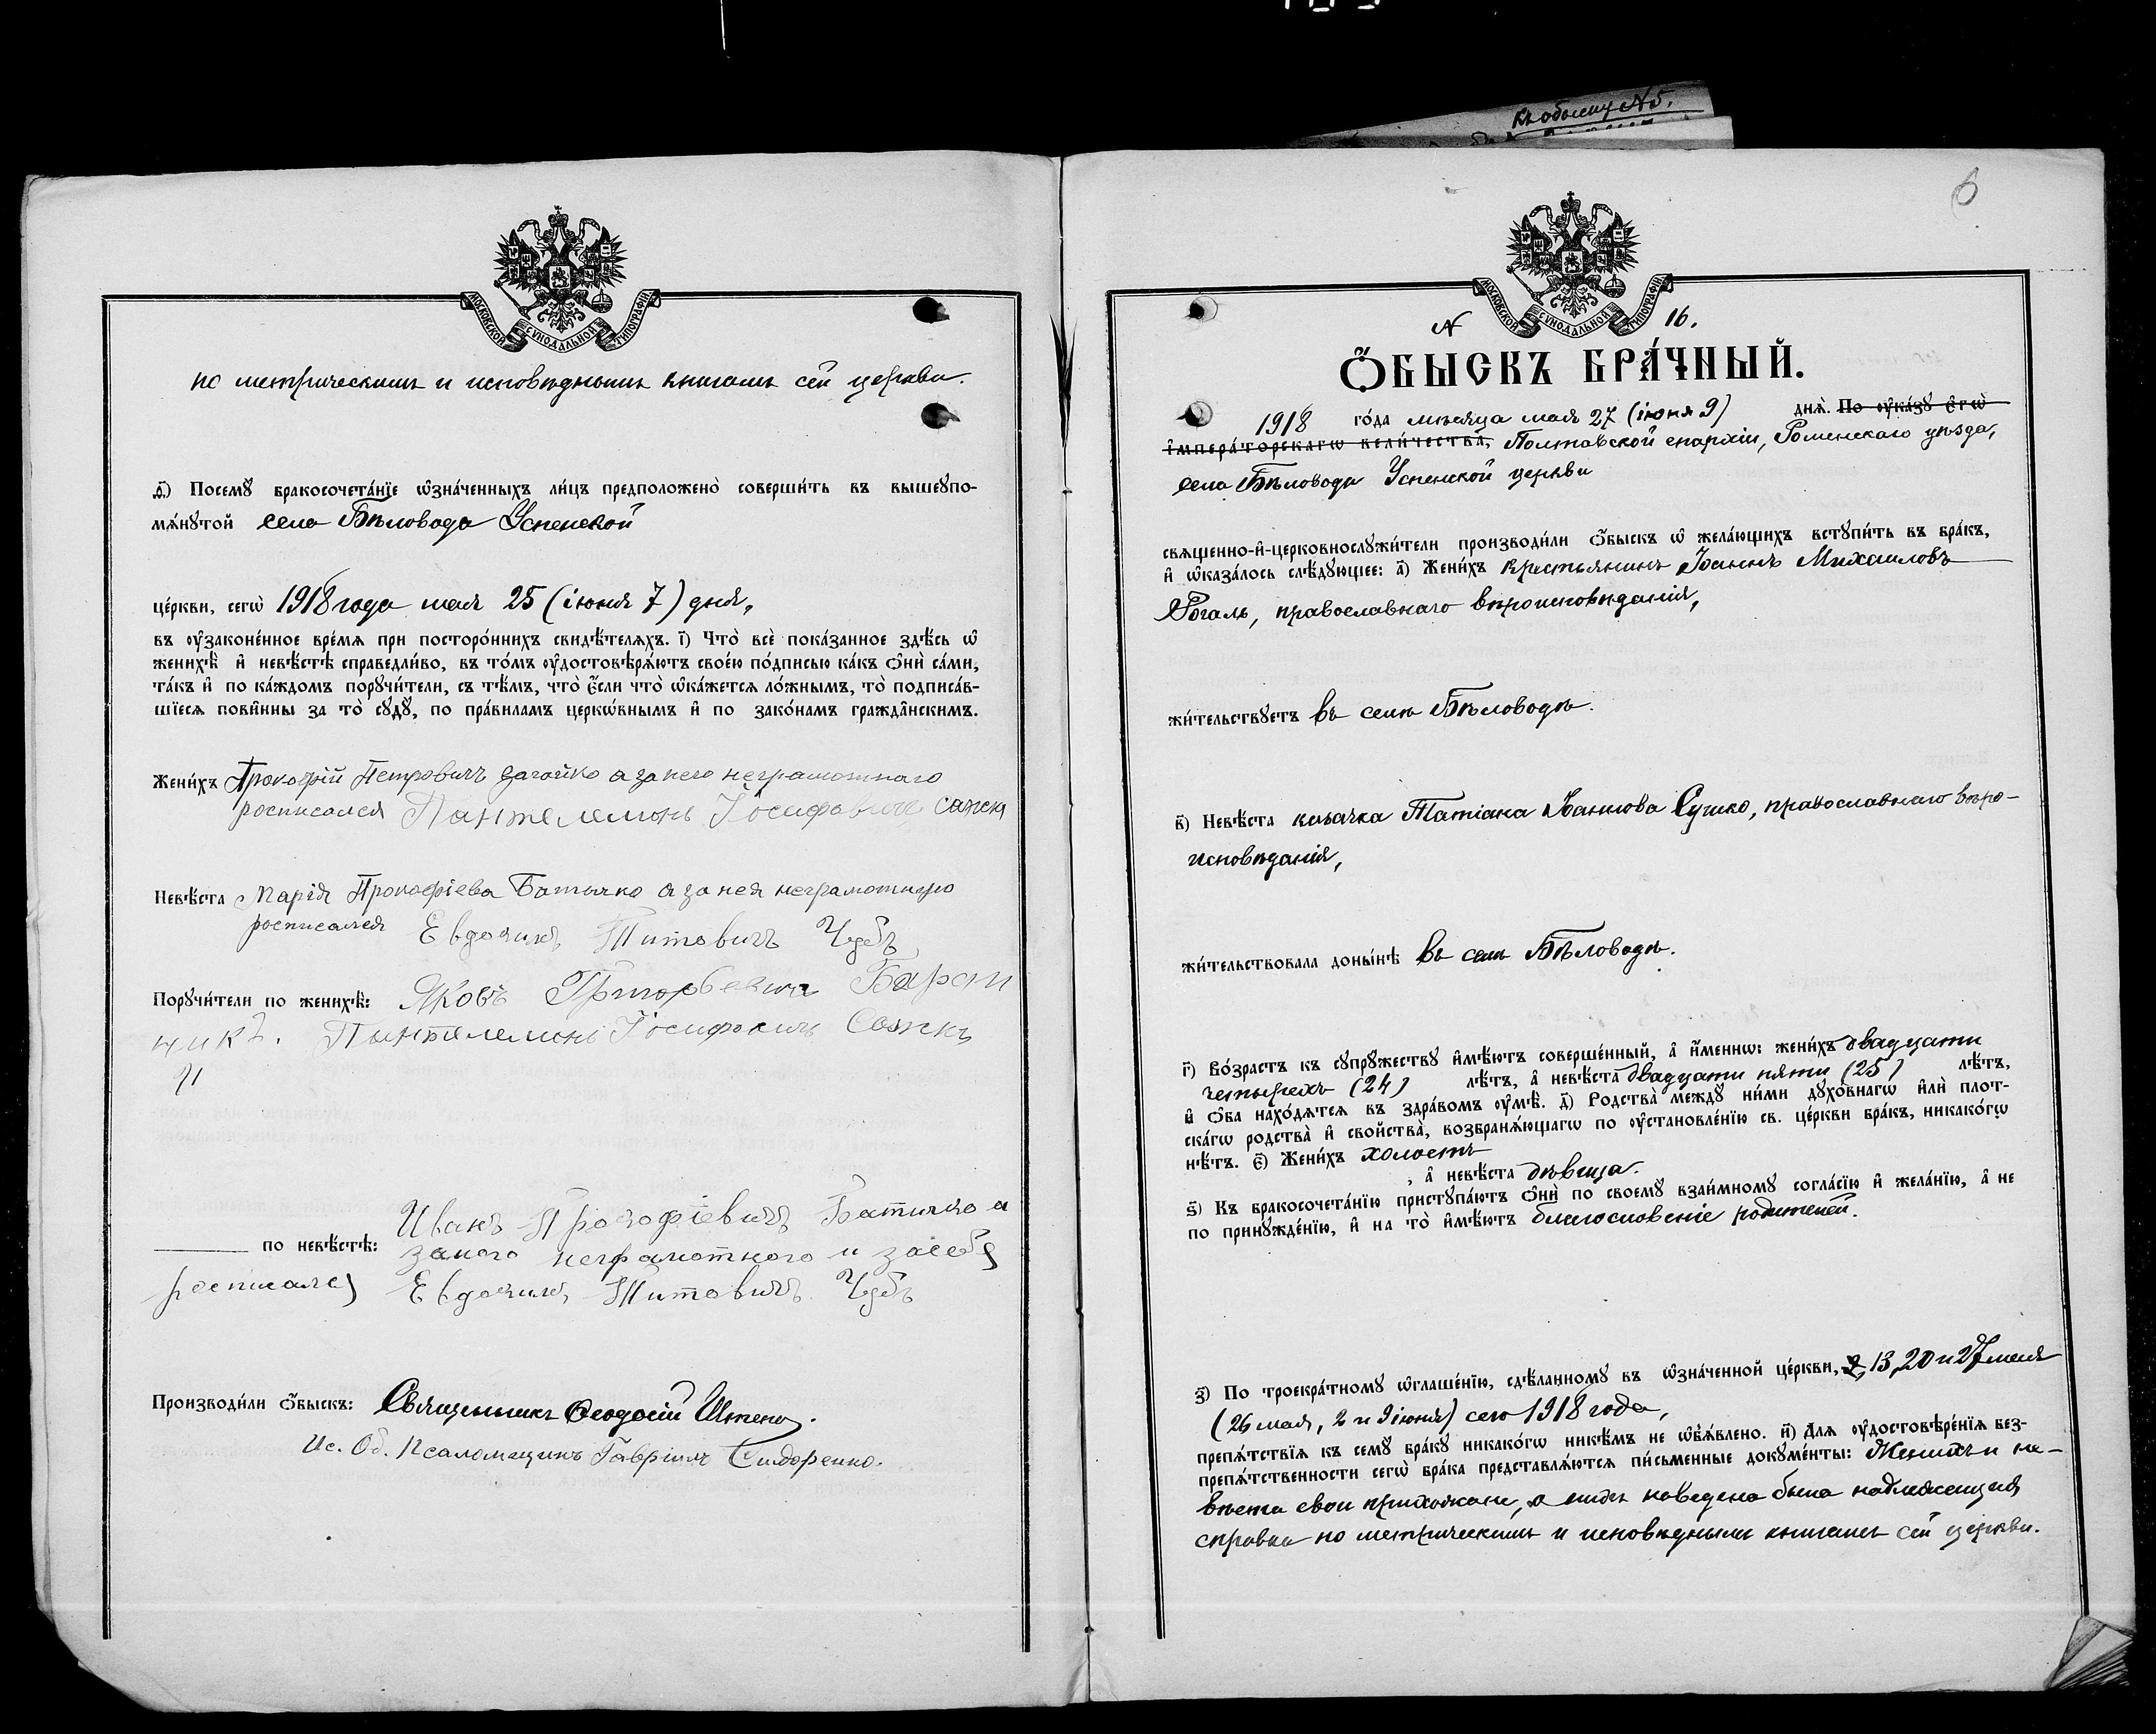 Къ обыску №5.
МОСКОВСКОЙ СѴНОДАЛЬНОЙ ТИПОГРАФІИ
по метрическимъ и исповѣднымъ книгамъ сей церкви.
ѳ҃) Посемꙋ̀ бракосочета́нїе ѡ҆зна́ченныхъ ли́цъ предположено̀ соверши́ть въ вышеꙋпо-
мѧ́нꙋтой села Бѣловода Успенской
це́ркви, сегѡ̀ 1918 года мая 25 (іюня 7) дня,
въ ᲂу҆законе́нное вре́мѧ при посторо́ннихъ свидѣ́телѧхъ. і҃) Что̀ всѐ пока́занное здѣ́сь ѡ҆
женихѣ̀ и҆ невѣ́стѣ справедли́во, въ то́мъ ᲂу҆достовѣрѧ́ютъ свое́ю по́дписью ка́къ ѻ҆нѝ са́ми,
та́къ и҆ по ка́ждомъ порꙋчи́тели, съ тѣ́мъ, что̀ є҆́сли что̀ ѡ҆ка́жетсѧ ло́жнымъ, то̀ подписа́в-
шїесѧ пови́нны за то̀ сꙋдꙋ̀, по пра́виламъ церкѡ́внымъ и҆ по зако́намъ гражда́нскимъ.
Жени́хъ Прокофій Петровичъ Загойко а за него неграмотнаго
росписался Пантелемонъ Іосифовичъ Сажкъ
Невѣ́ста Марія Прокофіева Батычко а за нея неграмотную
росписался Евдокимъ Титовичъ Чубъ
Порꙋчи́тели по женихѣ̀: Яковъ Григорьевичъ
никъ. Пантелемонъ Іосифовичъ Сажкъ
И
Иванъ Прокофіевичъ Батычко а
по невѣ́стѣ: за него неграмотного и за себя
росписался Евдокимъ Титовичъ Чубъ
Производи́ли ѻ҆́быскъ: Священникъ Ѳеодосій
Ис. Об. Псаломщикъ Гавріилъ Сидоренко.
6
МОСКОВСКОЙ СѴНОДАЛЬНОЙ ТИПОГРАФІИ
№ 16.
Ѻ҆́БЫСКЪ БРА́ЧНЫЙ.
1918 го́да мѣсяца мая 27 (іюня 9) днѧ̀. По ᲂу҆ка́зꙋ є҆гѡ̀
і҆мпера́торскагѡ вели́чества, Полтавской епархіи, Роменскаго уѣзда,
села Бѣловода Успенской церкви
свѧщенно-и҆-церковнослꙋжи́тели производи́ли ѻ҆́быскъ ѡ҆ жела́ющихъ встꙋпи́ть въ бра́къ,
и҆ ѡ҆каза́лось слѣ́дꙋющее: а҃) Жени́хъ крестьянинъ Іоаннъ Михаиловъ
Рогаль, православнаго вѣроисповѣданія,
жи́тельствꙋетъ въ селѣ Бѣловодѣ.
в҃) Невѣ́ста казачка Татіана Іоаннова Сушко, православнаго вѣро-
исповѣданія,
жи́тельствовала доны́нѣ въ селѣ Бѣловодѣ.
г҃) Во́зрастъ къ сꙋпрꙋ́жествꙋ и҆мѣ́ютъ соверше́нный, а҆ и҆́меннѡ: жени́хъ двадцати
четырехъ (24) лѣ́тъ, а҆ невѣ́ста двадцати пяти (25) лѣ́тъ,
и҆ ѻ҆́ба нахо́дѧтсѧ въ здра́вомъ ᲂу҆мѣ̀. д҃) Родства̀ междꙋ̀ ни́ми дꙋхо́внагѡ и҆лѝ плот-
ска́гѡ родства̀ и҆ свойства̀, возбранѧ́ющагѡ по ᲂу҆становле́нїю св. це́ркви бра́къ, никако́гѡ
нѣ́тъ. є҃) Жени́хъ холостъ
, а҆ невѣ́ста дѣвица.
ѕ҃) Къ бракосочета́нїю пристꙋпа́ютъ ѻ҆нѝ по своемꙋ̀ взаи́мномꙋ согла́сїю и҆ жела́нїю, а҆ не
по принꙋжде́нїю, и҆ на то̀ и҆мѣ́ютъ благословеніе родителей.
з҃) По троекра́тномꙋ ѡ҆глаше́нїю, сдѣ́ланномꙋ въ ѡ҆зна́ченной це́ркви, 13, 20 и 27 мая
(26 мая, 2 и 9 іюня) сего 1918 года,
препѧ́тствїѧ къ семꙋ̀ бра́кꙋ никако́гѡ никѣ́мъ не ѡ҆б̾ѧ́влено. и҃) Длѧ ᲂу҆достовѣре́нїѧ без-
препѧ́тственности сегѡ̀ бра́ка представлѧ́ютсѧ пи́сьменные докꙋме́нты: Женихъ и не-
вѣста свои прихожане, о нихъ наведена была надлежащая
справка по метрическимъ и исповѣднымъ книгамъ сей церкви.